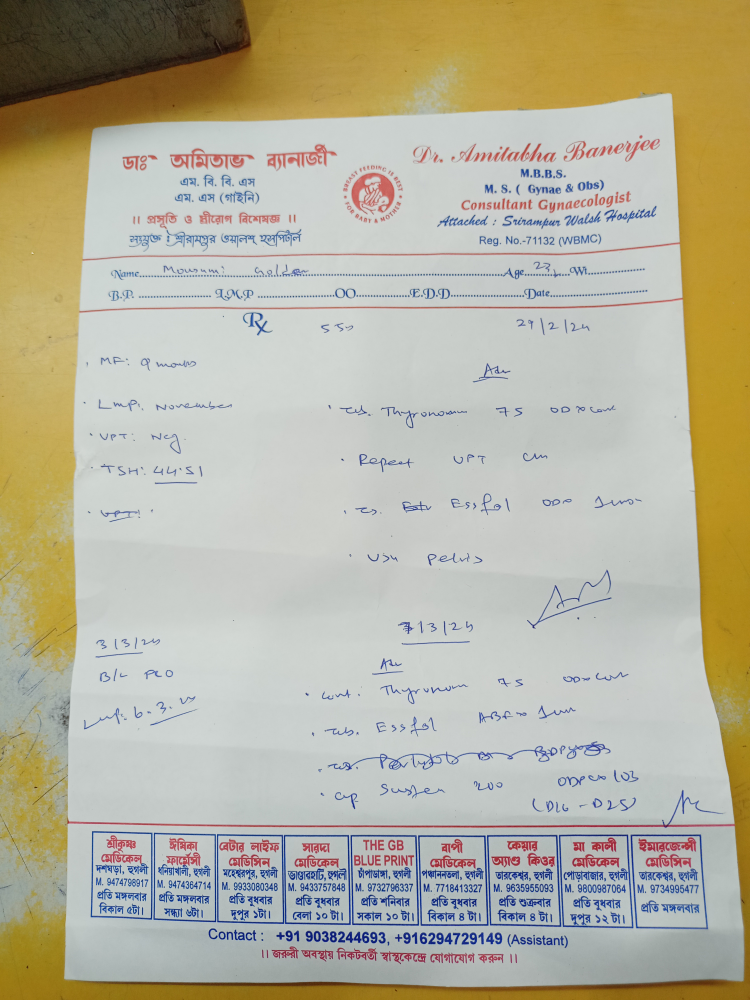 ডাঃ অমিতাভ ব্যানার্জী
এম. বি. বি. এস
এম. এস (গাইনি)
।। প্রসূতি ও স্ত্রীরোগ বিশেষজ্ঞ ।।
সংযুক্ত : শ্রীরামপুর ওয়ালশ হসপিটাল
BREAST FEEDING IS BEST
FOR BABY & MOTHER
Dr. Amitabha Banerjee
M.B.B.S.
M. S. ( Gynae & Obs)
Consultant Gynaecologist
Attached : Srirampur Walsh Hospital
Reg. No.-71132 (WBMC)
Name Mousumi Golder Age 23 Wt
B.P. L.M.P OO E.D.D Date
Rx 550 29/2/24
MF: 9 months
Adv
LMP: November
Tab. Thyronorm 75 OD x cont
UPT: Neg.
Repeat UPT
TSH: 44.51
UPT:
Essfol OD
USG Pelvis
3/3/24
7/3/24
B/L PCO
Adv
Cont. Thyronorm 75 OD x cont
LMP: 6.3.24
Tab. Essfol
Cap Susten 200
(D16 - D25)
শ্রীকৃষ্ণ মেডিকেল
দশঘড়া, হুগলী
M. 9474798917
প্রতি মঙ্গলবার
বিকাল ৫টা।
ঈমিকা ফার্মেসী
ধনিয়াখালী, হুগলী
M. 9474364714
প্রতি মঙ্গলবার
সন্ধ্যা ৬টা।
বেটার লাইফ মেডিসিন
মহেশ্বরপুর, হুগলী
M. 9933080348
প্রতি বুধবার
দুপুর ১টা।
সারদা মেডিকেল
ভাণ্ডারহাটি, হুগলী
M. 9433757848
প্রতি বুধবার
বেলা ১০টা।
THE GB
BLUE PRINT
চাঁপাডাঙ্গা, হুগলী
M. 9732796337
প্রতি শনিবার
সকাল ১০টা।
বাপী মেডিকেল
পঞ্চাননতলা, হুগলী
M. 7718413327
প্রতি বুধবার
বিকাল ৪টা।
কেয়ার অ্যাণ্ড কিওর
তারকেশ্বর, হুগলী
M. 9635955093
প্রতি শুক্রবার
বিকাল ৪টা।
মা কালী মেডিকেল
পোড়াবাজার, হুগলী
M. 9800987064
প্রতি বুধবার
দুপুর ১২টা।
ইমারজেন্সী মেডিসিন
তারকেশ্বর, হুগলী
M. 9734995477
প্রতি মঙ্গলবার
Contact : +91 9038244693, +916294729149 (Assistant)
।। জরুরী অবস্থায় নিকটবর্তী স্বাস্থ্যকেন্দ্রে যোগাযোগ করুন ।।